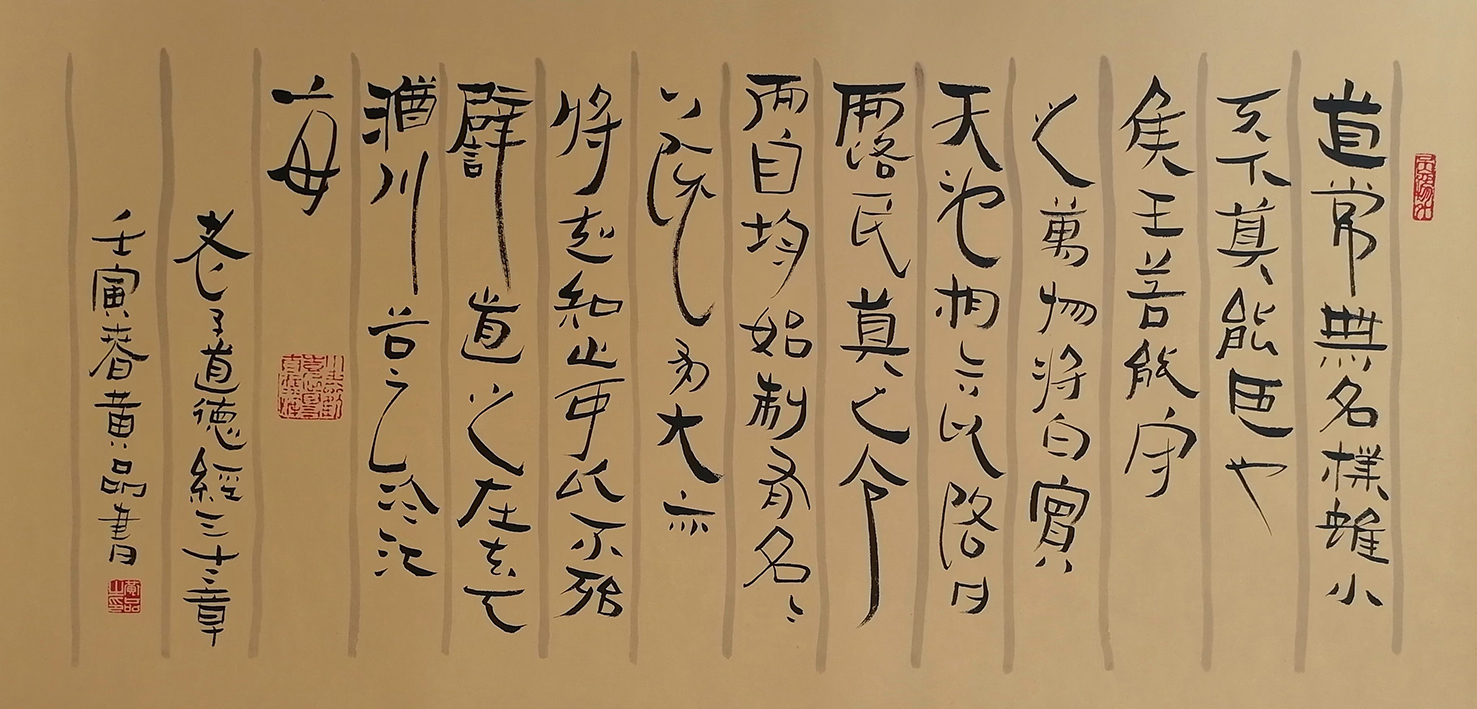 道常無名樸雖小
天下莫能臣也
矦王若能守
之萬物將自賓
天地相合以降甘
露民莫之令
而自均始制有名名
亦既有夫亦
將知止可以不殆
譬道之在天下
猶川谷之於江
海
老子道德經三十二章
壬寅春黃品書